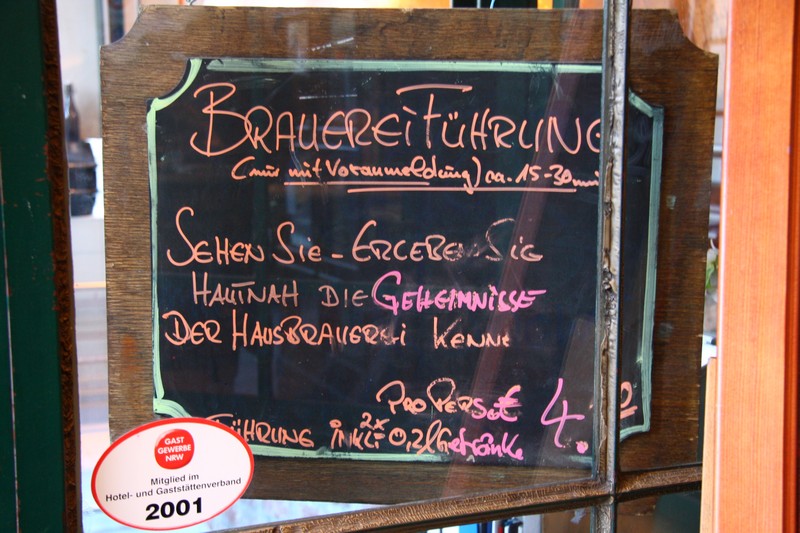 BRAUEREIFÜHRUNG
(nur mit Voranmeldung) ca. 15-30 min
SEHEN SIE - ERLEBEN SIE
HAUTNAH DIE GEHEIMNISSE
DER HAUSBRAUEREI KENN
PRO PERS. € 4.
FÜHRUNG INKL. 2x 0,2l Getränke
GAST
GEWERBE
NRW
Mitglied im
Hotel- und Gaststättenverband
2001